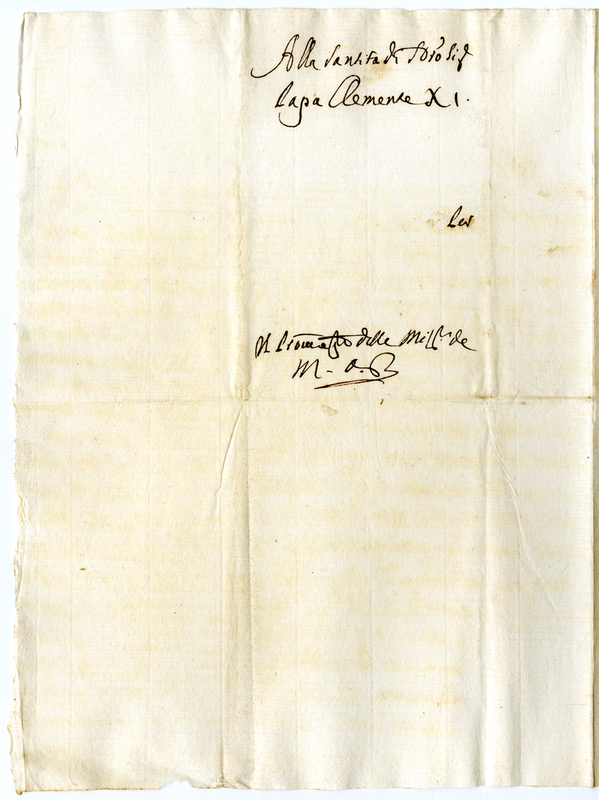 Alla Santita di Nro Sig
Papa Clemente XI.
Per
Il Promotore delle Miss.ni de
M. O. B